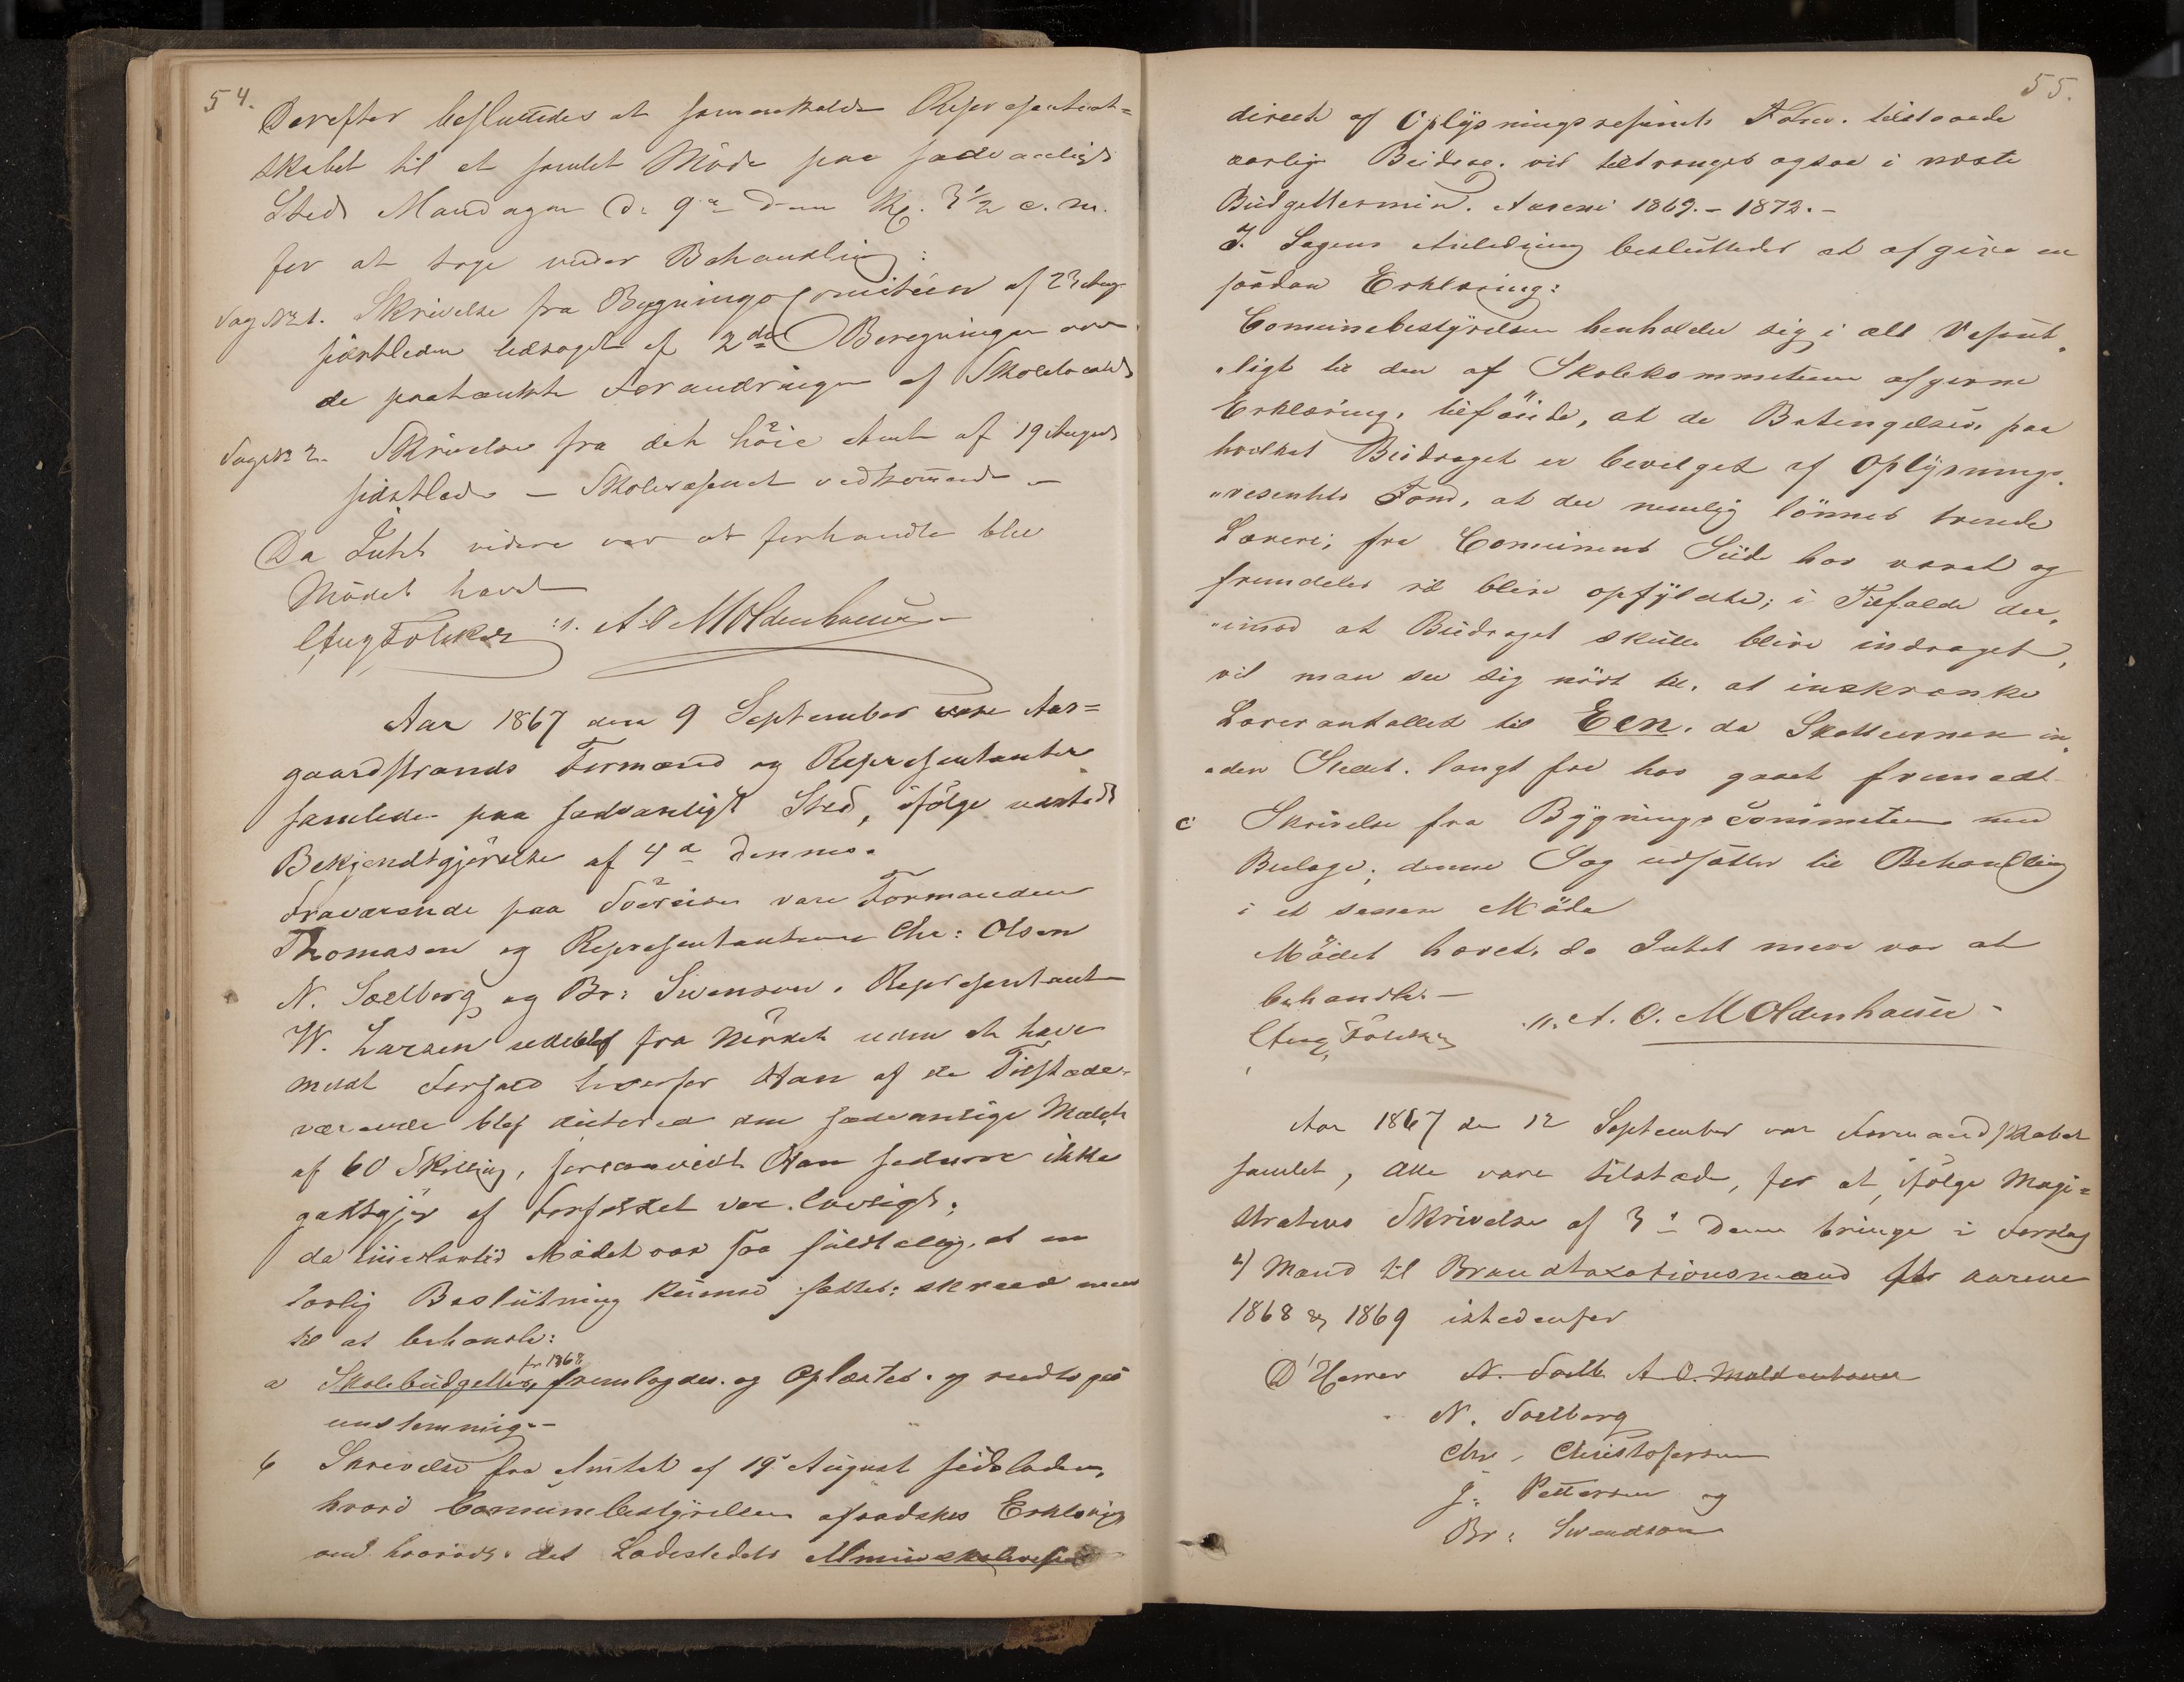 54.
Derefter besluttedes at sammenkalde Repræsentant=
skabet til et samlet Möde paa sædvanligt
Sted Mandagen D. 9de Den Kl. 3 1/2 e. m.
for at tage under Behandling:
Sag No 1. Skrivelse fra Bygningscomiteen af 23 Aug
sidstleden ledsaget af 2de Beregninger over
de paatænkte Forandringer af Skolelocalet
Sag No 2. Skrivelse fra det höie Amt af 19 August
sidstleden — Skolevæsenet vedkommende —
Da Intet videre var at forhandle blev
Mödet hævet
A O Moldenhauer
Aar 1867 den 9 September vare Aas=
gaardstrands Formænd og Repræsentanter
samlede paa sædvanligt Sted, ifölge udstedt
Bekjendtgjörelse af 4de dennes.
Fraværende paa Söreise vare Formanden
Thomasen og Representanterne Chr: Olsen
N. Soelberg og Br: Svenson. Representant
W. Larsen udeblef fra Mödet uden at have
meldt Forfald hvorfor Han af de Tilstede-
værende blef dicteret den sædvanlige Mulct
af 60 Skilling, forsaavidt Han senere ikke
godtgjör at Forfaldet var lovligt;
da imidlertid Mödet var saa fuldtallig, at en
lovlig Beslutning kunne fattes; skreed man
til at behandle:
a Skolebudgettet for 1868 fremlagdes og Oplæstes og vedtoges
enstemmig. —
b Skrivelse fra Amtet af 19 August sidstleden,
hvori Communebestyrelsen afæskes Erklæring
om hvorvidt det Ladestedets Almueskolevæsen
55.
directe af Oplysningsvæsenets Fond tilstaaede
aarlige Bidrag vil tiltrænges ogsaa i næste
Budgettermin. Aarene 1869. - 1872. -
I Sagens Anledning besluttedes at afgive en
saadan Erklæring:
Communebestyrelsen henholder sig i alt Væsent„
„ligt til den af Skolekommiteen afgivne
Erklæring, tilföiende, at de Betingelser, paa
hvilket Bidraget er bevilget af Oplysnings„
„væsenets Fond, at der nemlig lönnes trende
Lærere; fra Communens Side har været og
fremdeles vil blive opfyldte; i Tilfælde der„
„imod at Bidraget skulle blive indraget,
vil man see sig nödt til, at inskrænke
Lærerantallet til Een, da Skatteevnen in„
„den Stedet. langt fra har gaaet fremad
c Skrivelse fra Bygningscommiteen med
Beilage; denne Sag udsættes til Behandling
i et senere Möde
Mödet hævet, da Intet mere var at
behandle. —
A. O. Moldenhauer
Aar 1867 den 12 September var Formandskabet
samlet, Alle vare tilstæde, for at, ifölge Magi=
stratens Skrivelse af 3de Denne bringe i Forslag
4) Mænd til Brandtaxationsmænd for Aarene
1868 & 1869 istedenfor
D'Herrer N. Soelb A. O. Moldenhauer
N. Soelberg
Chr. Christofersen
J. Pettersen og
Br: Svendson